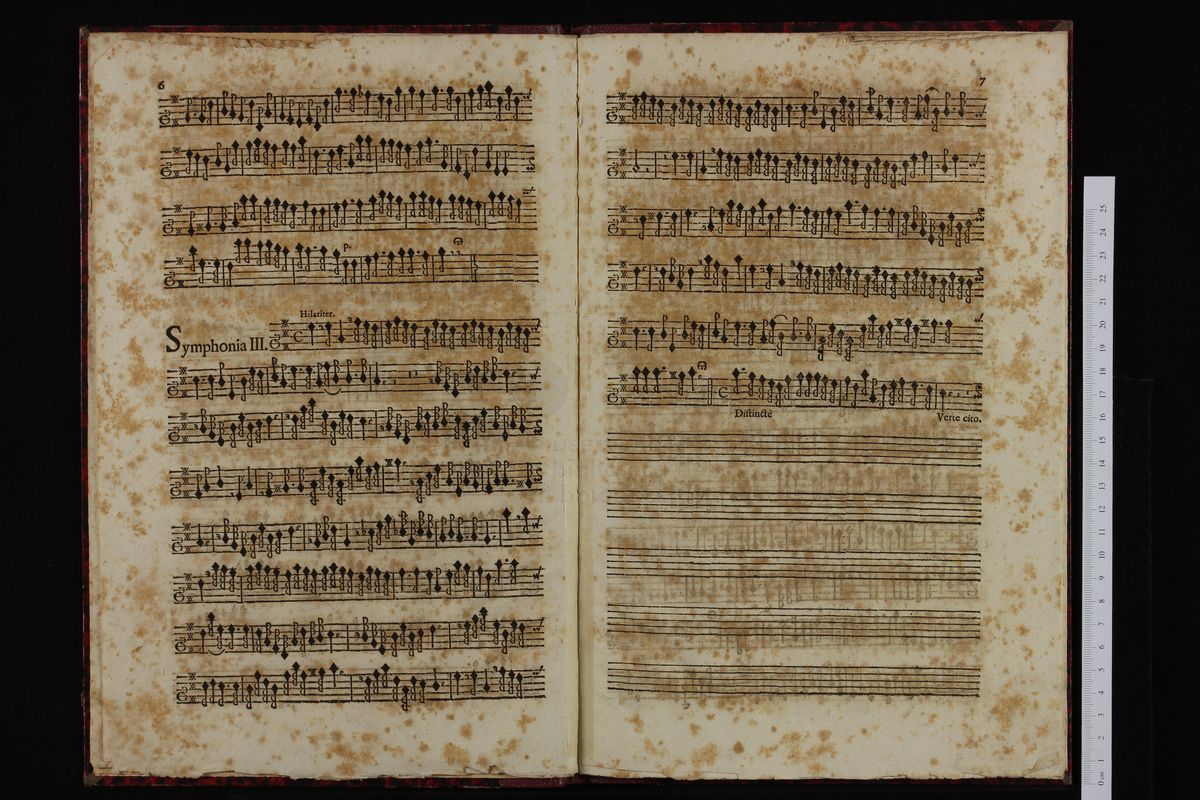 6
P.
Hilariter.
Symphonia III.
7
Distinctè
Verte cito.
0 cm 1 2 3 4 5 6 7 8 9 10 11 12 13 14 15 16 17 18 19 20 21 22 23 24 25